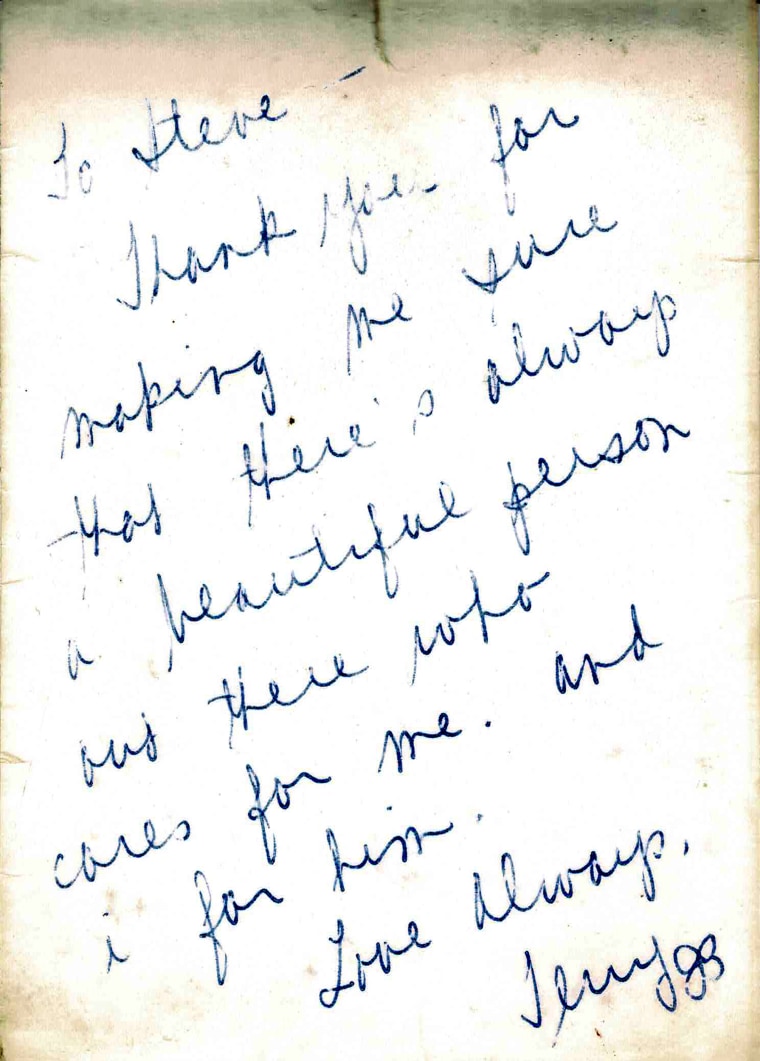 To Steve —
Thank you for
making me sure
that there's always
a beautiful person
out there who
cares for me. and
i for him.
Love always,
Terry